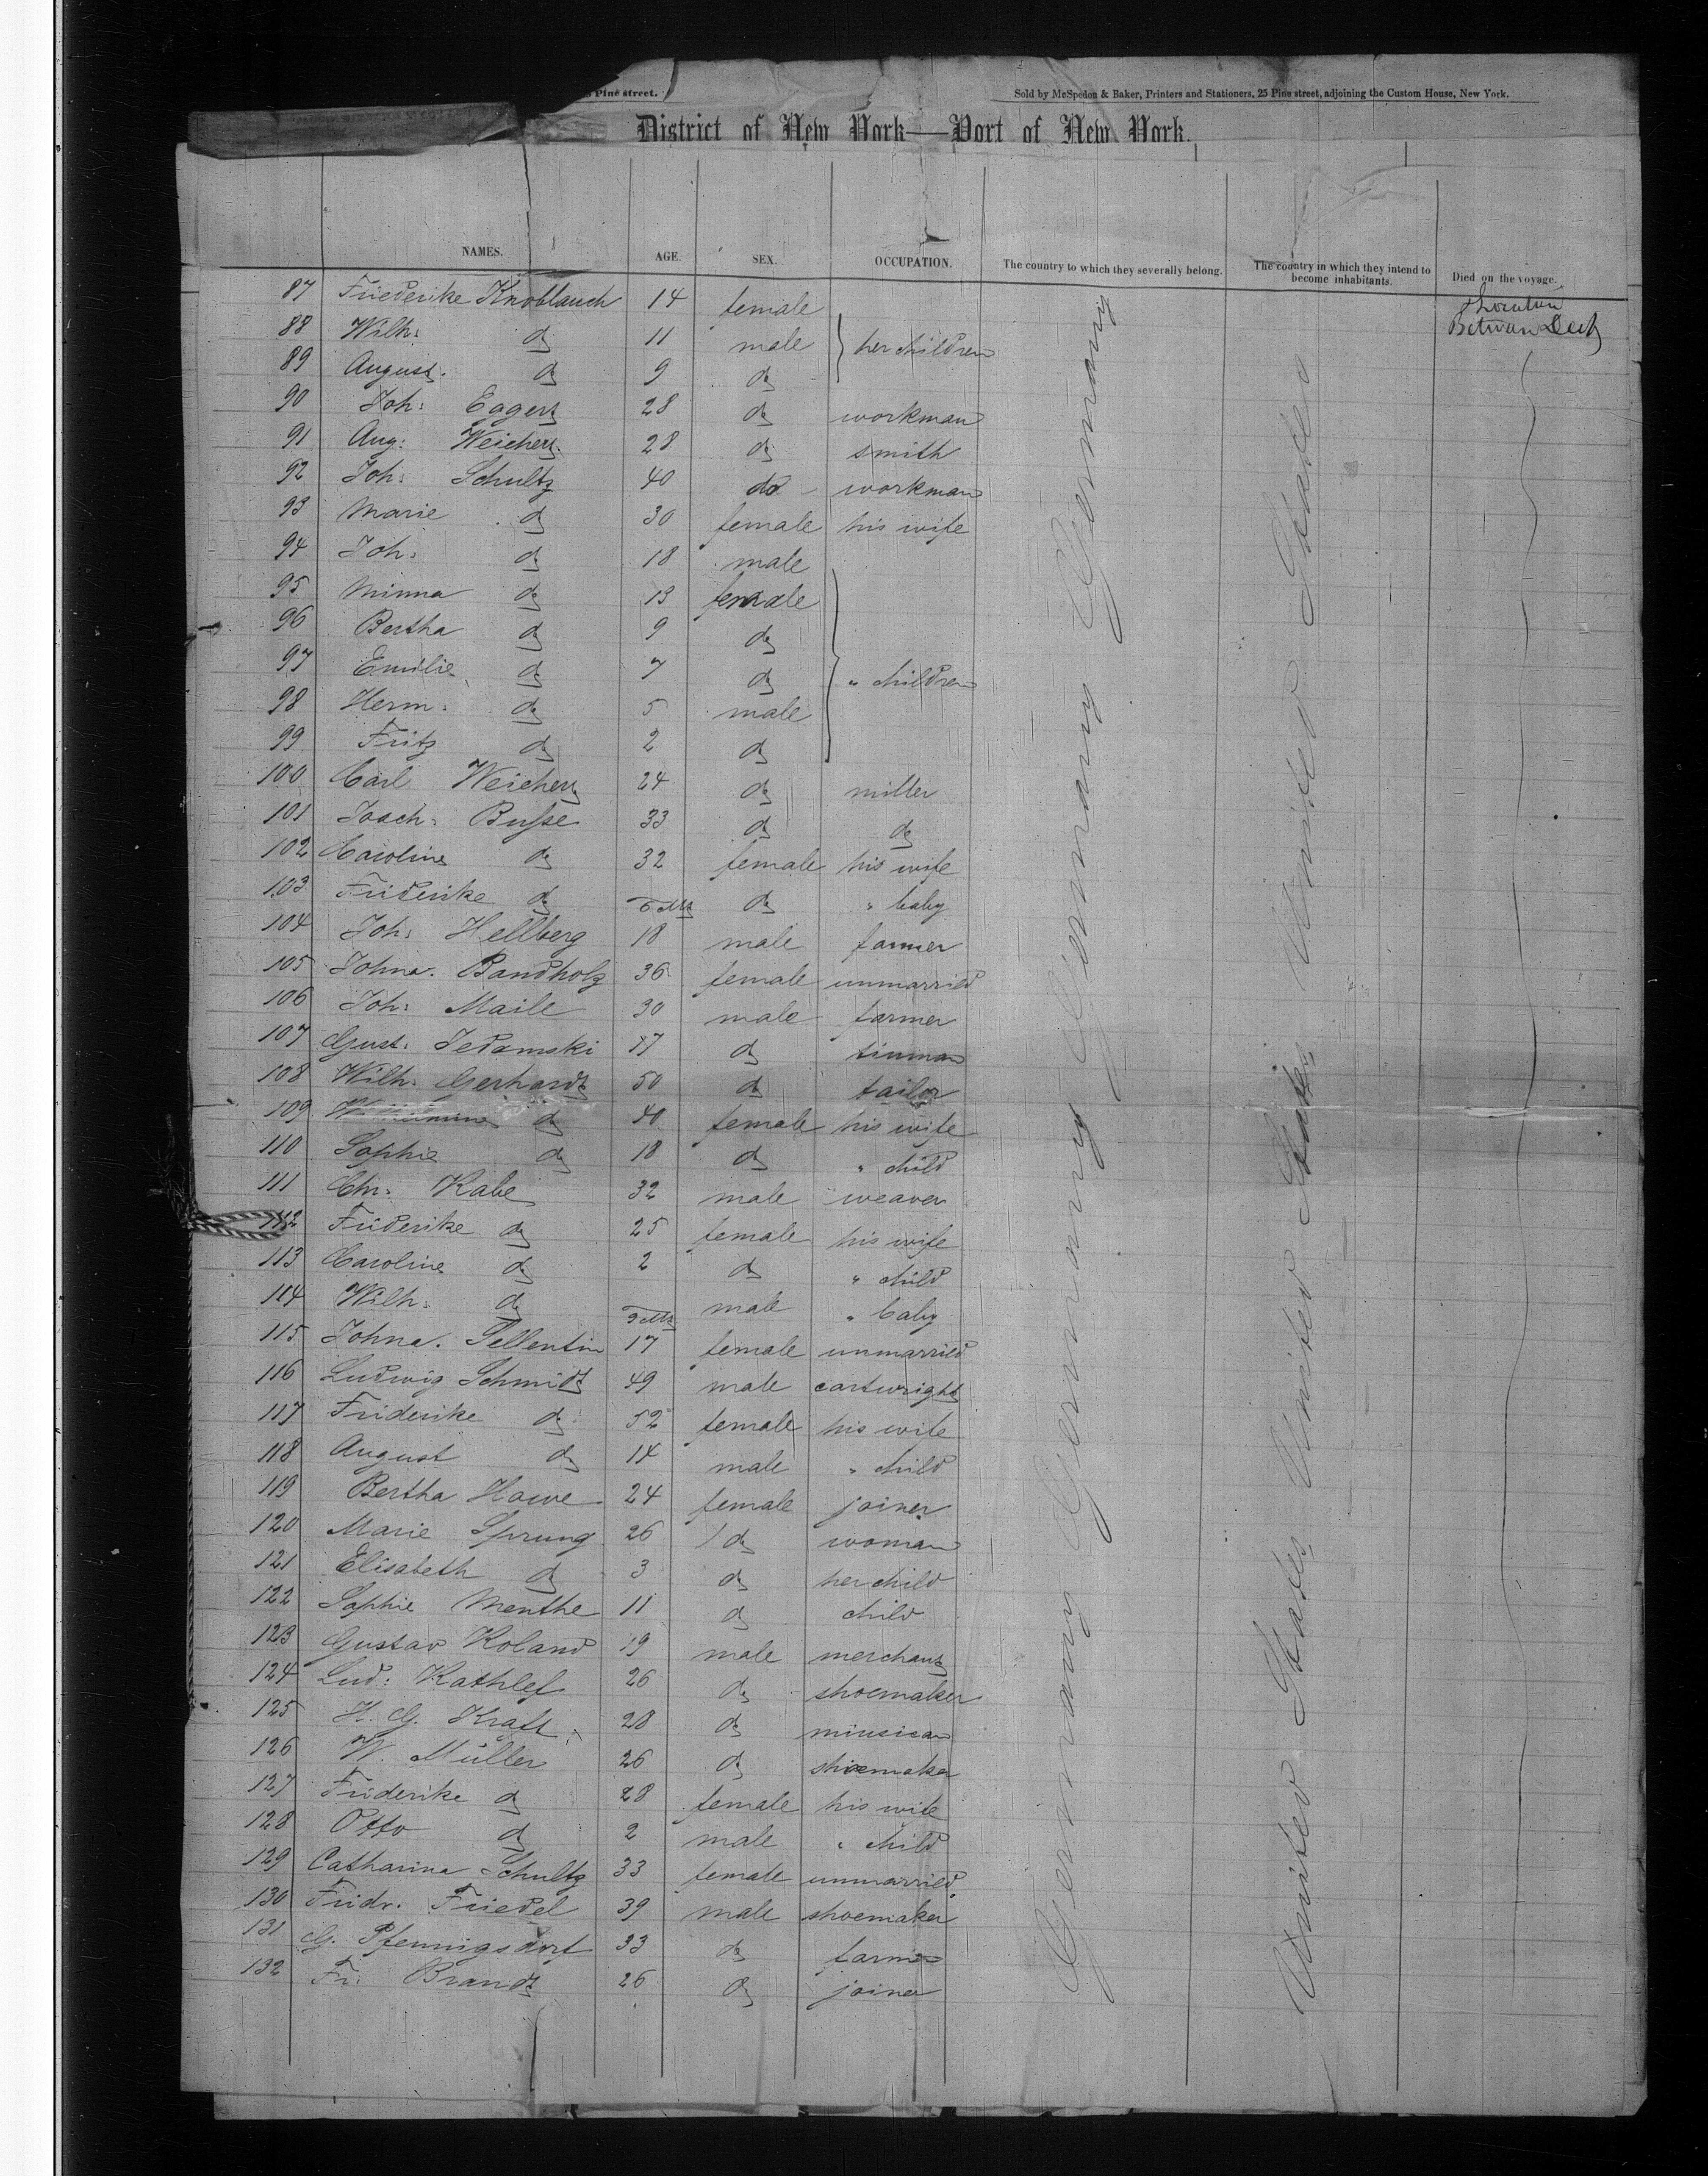 Pine street.
Sold by McSpedon & Baker, Printers and Stationers, 25 Pine street, adjoining the Custom House, New York.
District of New York—Port of New York.
NAMES. AGE. SEX. OCCUPATION. The country to which they severally belong. The country in which they intend to become inhabitants. Died on the voyage.
87 Friederike Knoblauch 14 female
Between Deck
88 Wilh: do 11 male } her children
89 August do 9 do
90 Joh: Eggers 28 do workman
91 Aug: Weichert 28 do smith
92 Joh: Schultz 40 do workman
93 Marie do 30 female his wife
94 Joh: do 18 male
95 Minna do 13 female
96 Bertha do 9 do
97 Emilie do 7 do } " children
98 Herm: do 5 male
99 Fritz do 2 do
100 Carl Weichert 24 do miller
101 Joach: Busse 33 do do
102 Caroline do 32 female his wife
103 Friderike do 6 Mts do " baby
104 Joh: Hellberg 18 male farmer
105 Johna. Bandholz 36 female unmarried
106 Joh: Maile 30 male farmer
107 Gust: Jedamski 17 do tinman
108 Wilh: Gerhardt 50 do tailor
109 do 40 female his wife
110 Sophie do 18 do " child
111 Chr: Kabe 32 male weaver
112 Friderike do 25 female his wife
113 Caroline do 2 do " child
114 Wilh: do 9 Mts male " baby
115 Johna. Sellentin 17 female unmarried
116 Ludwig Schmidt 49 male cartwright
117 Friderike do 52 female his wife
118 August do 14 male " child
119 Bertha Howe 24 female joiner
120 Marie Sprung 26 do woman
121 Elisabeth do 3 do her child
122 Sophie Menthe 11 do child
123 Gustav Roland 19 male merchant
124 Lud: Kathlef 26 do shoemaker
125 H. G. Kraft 28 do miusican
126 W. Müller 26 do shoemaker
127 Friderike do 28 female his wife
128 Otto do 2 male " child
129 Catharina Schultz 33 female unmarried
130 Fridr. Friedel 39 male shoemaker
131 G. Pfennigsdorf 33 do farmer
132 Fr: Brandt 26 do joiner
Germany Germany Germany Germany
United States United States United States